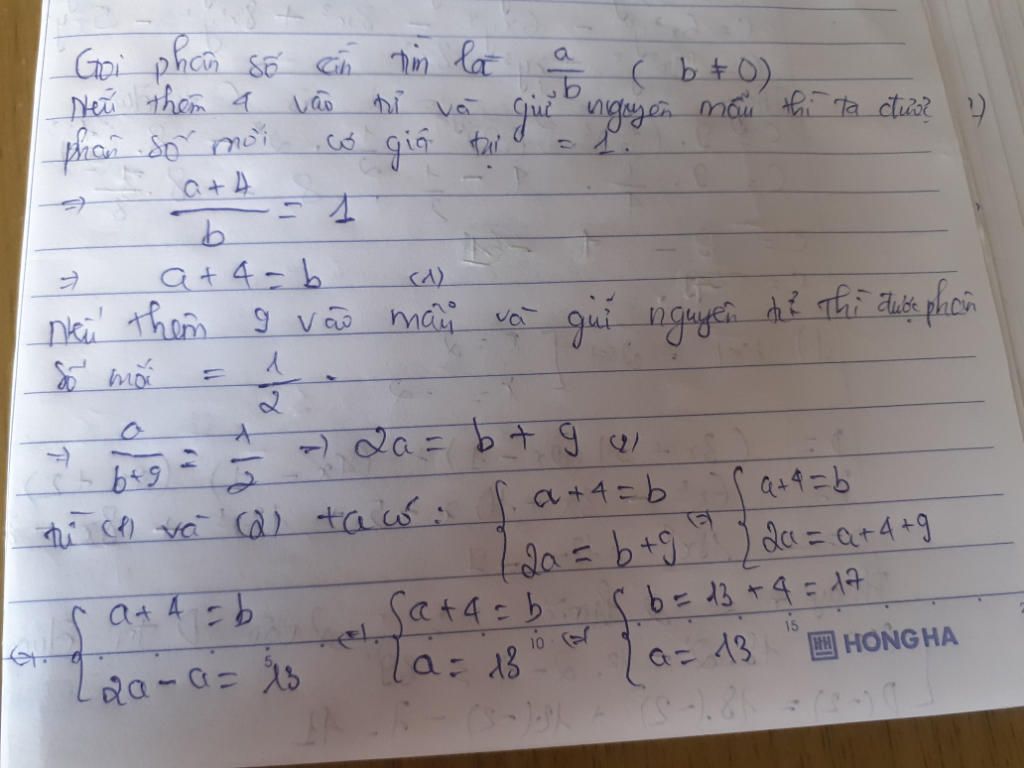 Gọi phân số cần tìm là a/b ( b ≠ 0)
Nếu thêm 4 vào tử và giữ nguyên mẫu thì ta được
phân số mới có giá trị = 1.
=> (a+4)/b = 1
=> a + 4 = b (1)
Nếu thêm 9 vào mẫu và giữ nguyên tử thì được phân
số mới = 1/2.
=> a/(b+9) = 1/2 => 2a = b + 9 (2)
từ (1) và (2) ta có: { a+4 = b ; 2a = b+9 <=> { a+4 = b ; 2a = a+4+9
<=> { a+4 = b ; 2a - a = 13 <=> { a+4 = b ; a = 13 <=> { b = 13 + 4 = 17 ; a = 13
5 10 15
HONG HA